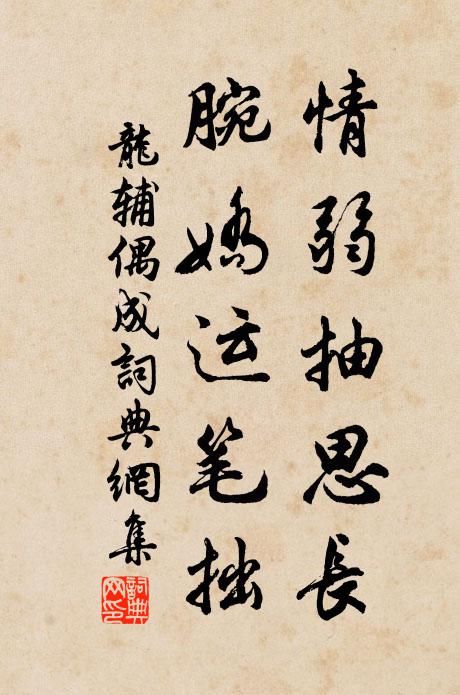 情弱抽思長
腕嬌运笔拙
龍辅偶成詞典網集
詞典网印